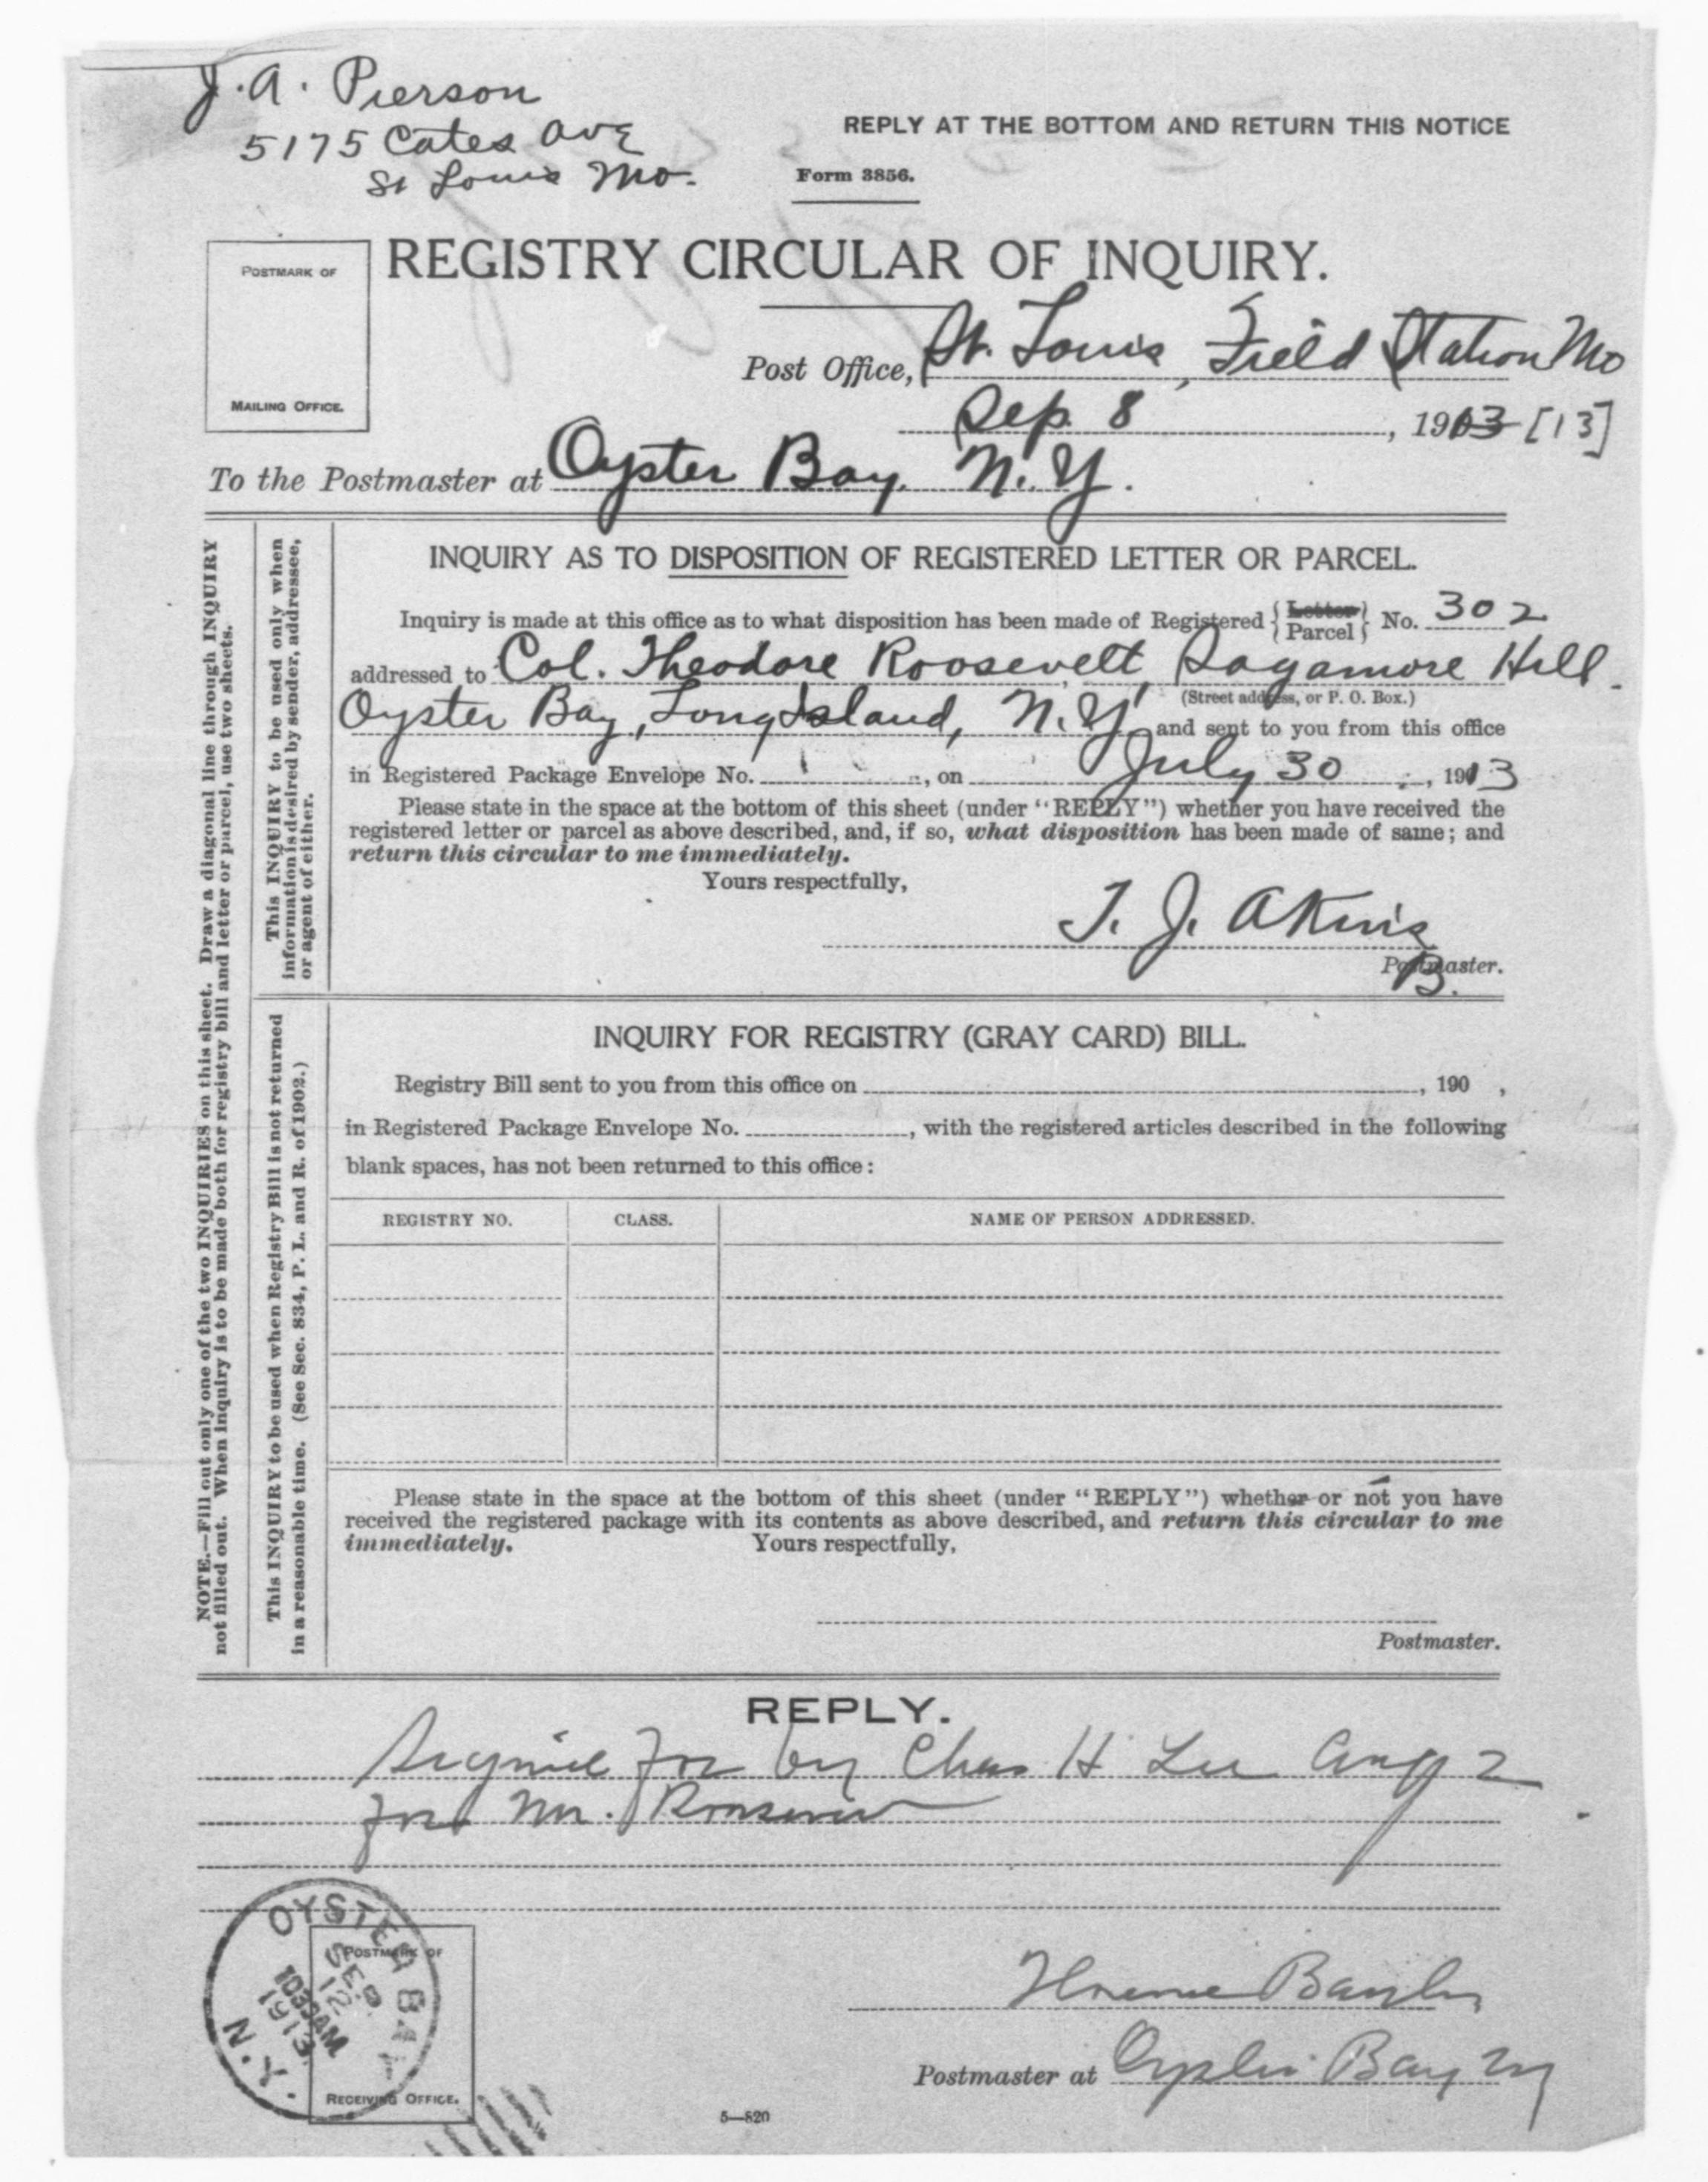 J. A. Pierson
5175 Cates Ave
St Louis Mo.
REPLY AT THE BOTTOM AND RETURN THIS NOTICE
Form 3856.
POSTMARK OF
MAILING OFFICE.
REGISTRY CIRCULAR OF INQUIRY.
Post Office, St. Louis, Field Station Mo
Sep. 8, 1913 [13]
To the Postmaster at Oyster Bay, N.Y.
NOTE.—Fill out only one of the two INQUIRIES on this sheet. Draw a diagonal line through INQUIRY
not filled out. When inquiry is to be made both for registry bill and letter or parcel, use two sheets.
This INQUIRY to be used only when
information is desired by sender, addressee,
or agent of either.
INQUIRY AS TO DISPOSITION OF REGISTERED LETTER OR PARCEL.
Inquiry is made at this office as to what disposition has been made of Registered { Letter Parcel } No. 302
addressed to Col. Theodore Roosevelt, Sagamore Hill.
(Street address, or P. O. Box.)
Oyster Bay, Long Island, N.Y. and sent to you from this office
in Registered Package Envelope No. , on July 30, 1913
Please state in the space at the bottom of this sheet (under "REPLY") whether you have received the
registered letter or parcel as above described, and, if so, what disposition has been made of same; and
return this circular to me immediately.
Yours respectfully,
T. J. Akins
Postmaster.
B.
This INQUIRY to be used when Registry Bill is not returned
in a reasonable time. (See Sec. 834, P. L. and R. of 1902.)
INQUIRY FOR REGISTRY (GRAY CARD) BILL.
Registry Bill sent to you from this office on , 190 ,
in Registered Package Envelope No. , with the registered articles described in the following
blank spaces, has not been returned to this office:
REGISTRY NO. CLASS. NAME OF PERSON ADDRESSED.
Please state in the space at the bottom of this sheet (under "REPLY") whether or not you have
received the registered package with its contents as above described, and return this circular to me
immediately. Yours respectfully,
Postmaster.
REPLY.
Signed for by Chas H Lee Aug 2
for Mr. Roosevelt
OYSTER BAY
SEP
12
1030AM
1913
N.Y.
POSTMARK OF
RECEIVING OFFICE.
Postmaster at Oyster Bay NY
5—520